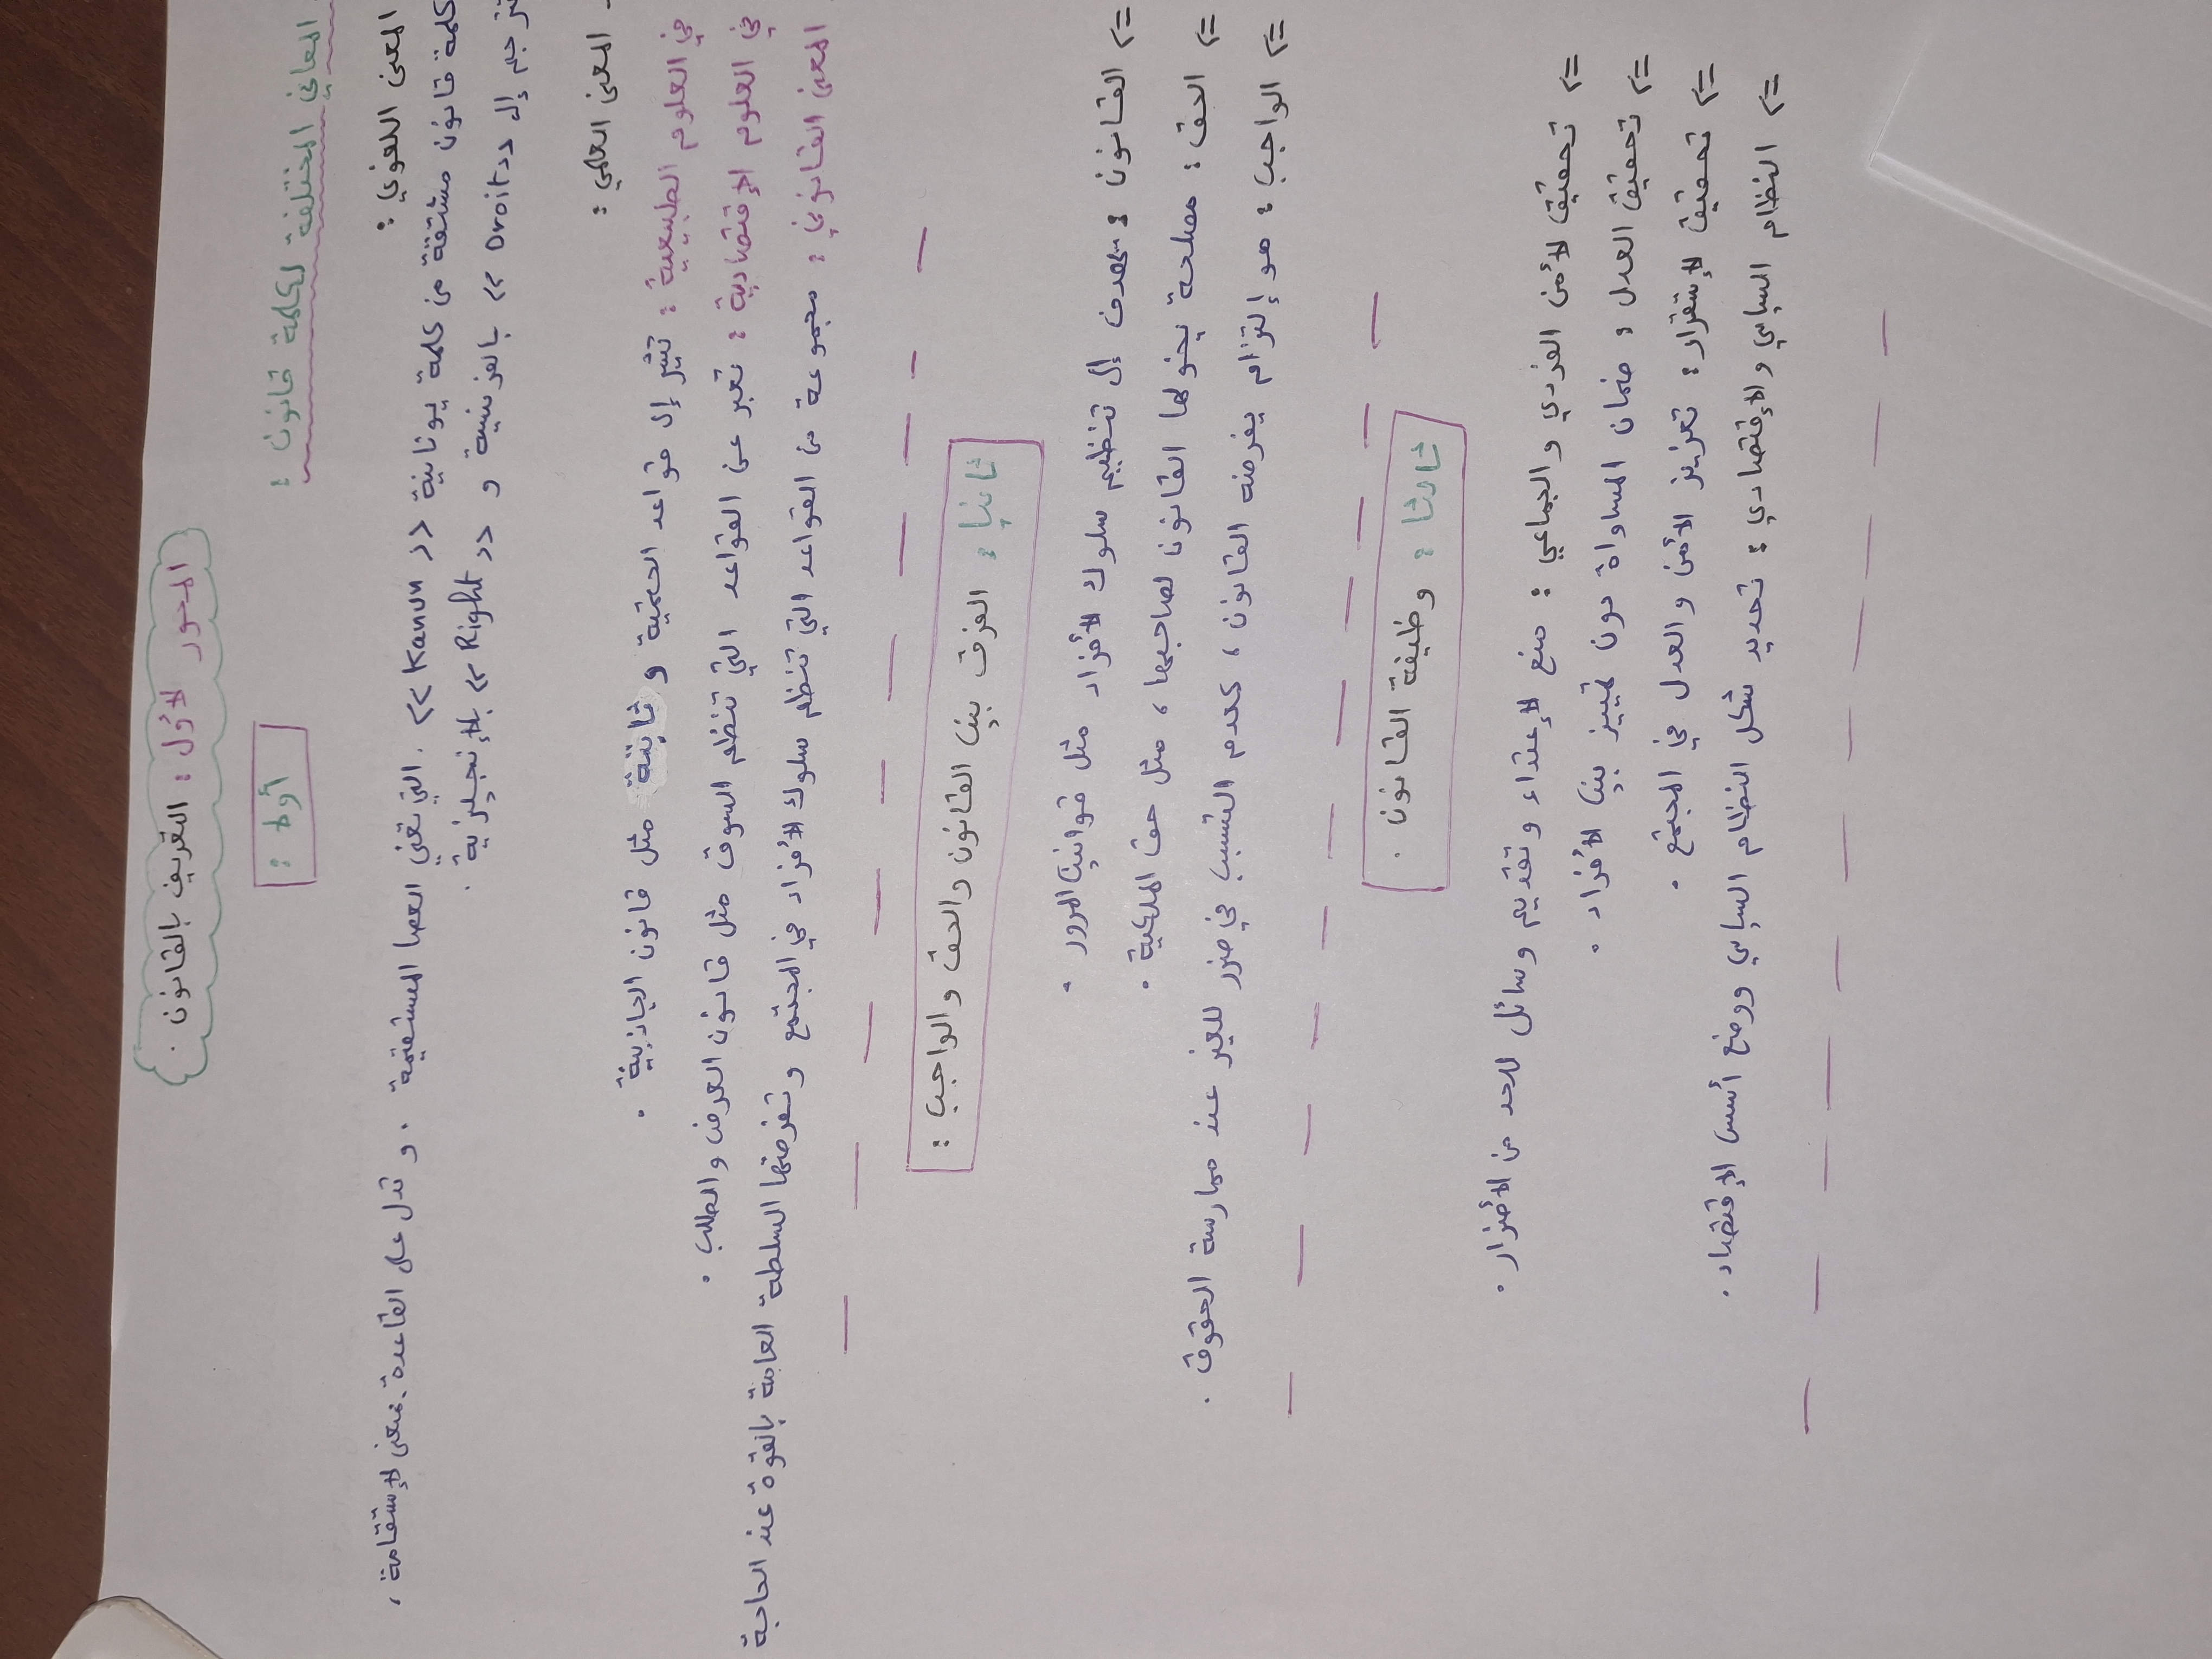 المحور الأول : التعريف بالقانون .
أولا :
المعاني المختلفة لكلمة قانون :
المعنى اللغوي :
كلمة قانون مشتقة من كلمة يونانية << Kanun >> . التي تعني العصا المستقيمة . و تدل على القاعدة . بمعنى الإستقامة ،
تترجم إلى << Droit >> بالفرنسية و << Right >> بالإنجليزية .
المعنى العلمي :
في العلوم الطبيعية : تشير إلى قواعد الحتمية و ثابتة مثل قانون الجاذبية .
في العلوم الإقتصادية : تعبر عن القواعد التي تنظم السوق مثل قانون العرض والطلب .
المعنى القانوني : مجموعة من القواعد التي تنظم سلوك الأفراد في المجتمع و تفرضها السلطة العامة بالقوة عند الحاجة
ثانيا : الفرق بين القانون والحق والواجب :
=> القانون : يهدف إلى تنظيم سلوك الأفراد مثل قوانين المرور .
=> الحق : مصلحة يخولها القانون لصاحبها ، مثل حق الملكية .
=> الواجب : هو إلتزام يفرضه القانون ، كعدم التسبب في ضرر للغير عند ممارسة الحقوق .
ثالثا : وظيفة القانون .
=> تحقيق الأمن الفردي والجماعي : منع الإعتداء و تقديم وسائل للحد من الأضرار .
=> تحقيق العدل : ضمان المساواة دون تمييز بين الأفراد .
=> تحقيق الإستقرار : تعزيز الأمن والعدل في المجتمع .
=> النظام السياسي والإقتصادي : تحديد شكل النظام السياسي ووضع أسس الإقتصاد .